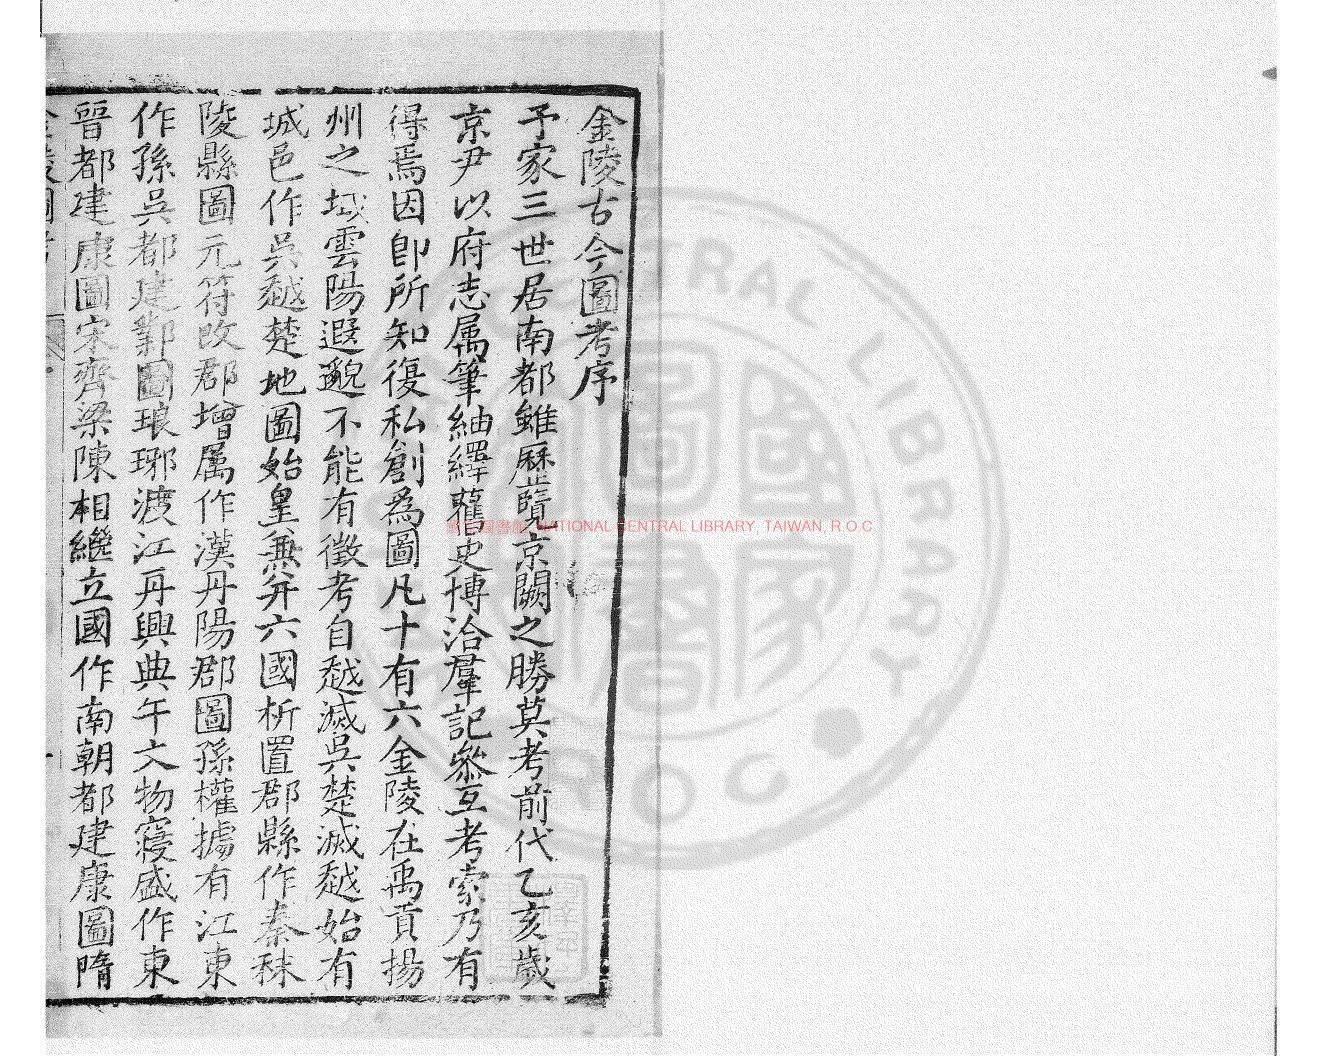 金陵古今圖考序
予家三世居南都雖歷覽京闕之勝莫考前代乙亥歲
京尹以府志属筆紬繹舊史博洽羣記叅互考索乃有
得焉因卽所知復私創爲圖凡十有六金陵在禹貢揚
州之域雲陽遐邈不能有徵考自越滅吳楚滅越始有
城邑作吳越楚地圖始皇無并六國析置郡縣作秦秣
陵縣圖元符改郡增属作漢丹陽郡圖孫權據有江東
作孫吳都建鄴圖琅琊渡江再興典午文物寖盛作東
晉都建康圖宋齊梁陳相繼立國作南朝都建康圖隋
國家圖書館, NATIONAL CENTRAL LIBRARY, TAIWAN, R.O.C
CENTRAL LIBRARY
R O C
國家圖書